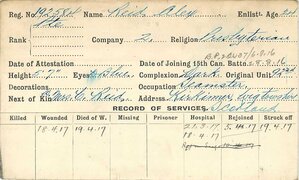 Reg. No 192584 Name Reid Alex Enlistt. Age 20
Rank Pte Company 2 Religion Presbyterian
B.P.
Date of Attestation Date of Joining 15th Can. Battn. 8.9.16
Height 5' 7" Eyes Blue Complexion Dark Original Unit 92nd
Decorations Occupation Teamster
Next of Kin Mrs C. Reid Address
RECORD OF SERVICES. Scotland
Killed Wounded Died of W. Missing Prisoner Hospital Rejoined Struck off
18.4.17 19.4.17 21.3.17 5.4.17 19.4.17
18.4.17